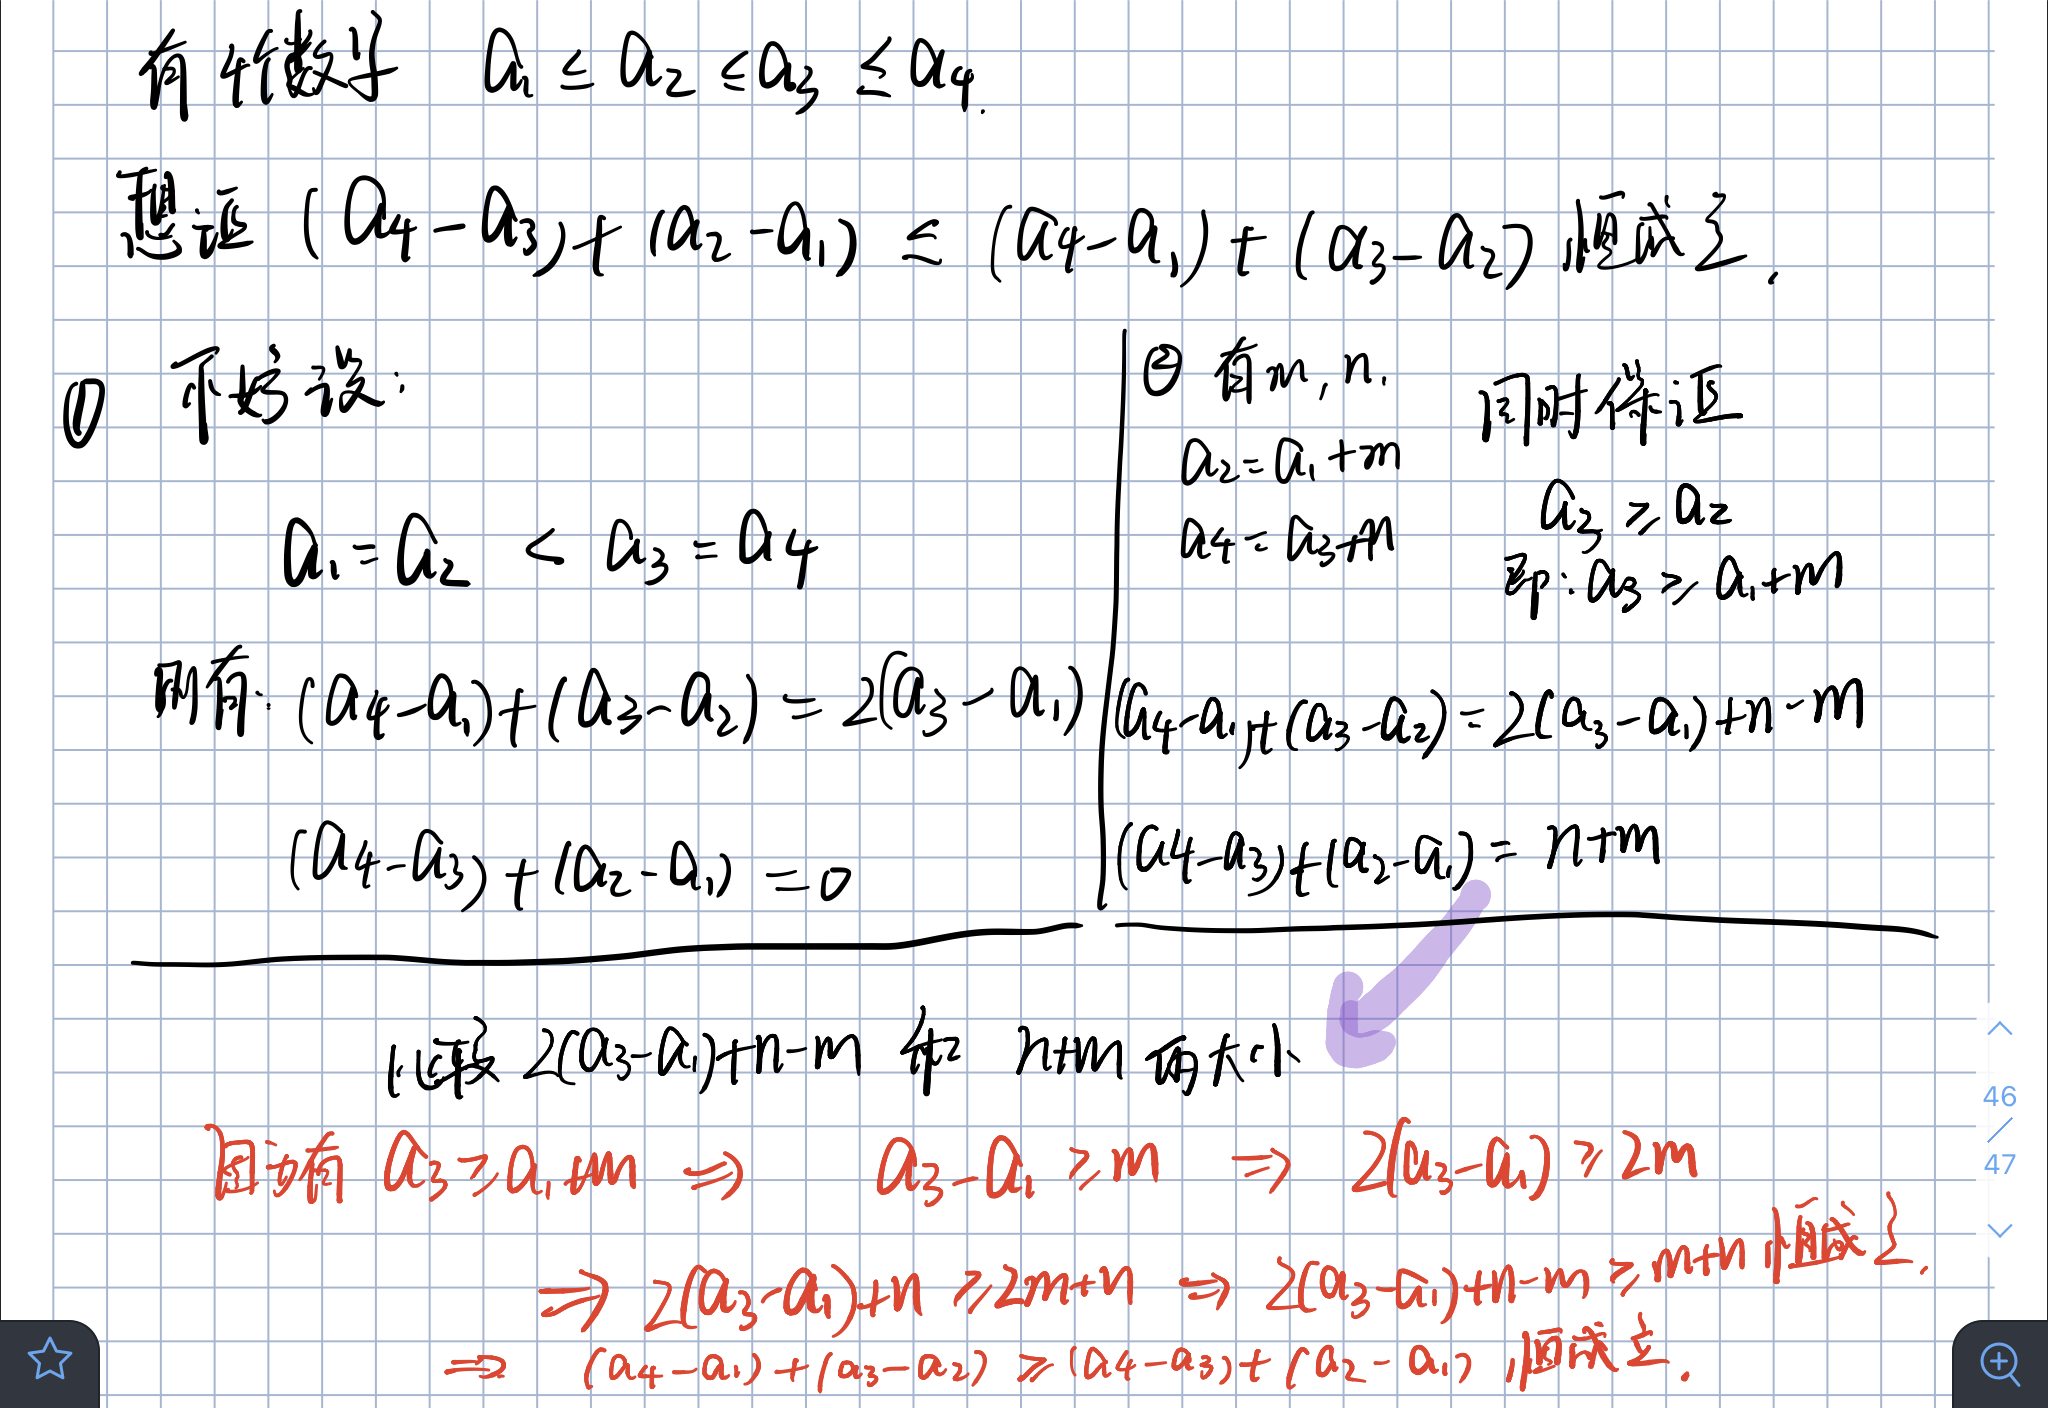 有4个数字 a₁ ≤ a₂ ≤ a₃ ≤ a₄.
想证 (a₄-a₃)+(a₂-a₁) ≤ (a₄-a₁)+(a₃-a₂) 恒成立.
① 不妨设:
a₁=a₂ < a₃=a₄
则有: (a₄-a₁)+(a₃-a₂)=2(a₃-a₁)
(a₄-a₃)+(a₂-a₁)=0
② 有m,n.
a₂=a₁+m
a₄=a₃+n
同时保证
a₃≥a₂
即:a₃≥a₁+m
(a₄-a₁)+(a₃-a₂)=2(a₃-a₁)+n-m
(a₄-a₃)+(a₂-a₁)=n+m
比较 2(a₃-a₁)+n-m 和 n+m 的大小
因为有 a₃≥a₁+m ⇒ a₃-a₁≥m ⇒ 2(a₃-a₁)≥2m
⇒ 2(a₃-a₁)+n≥2m+n ⇒ 2(a₃-a₁)+n-m≥m+n 恒成立.
⇒ (a₄-a₁)+(a₃-a₂)≥(a₄-a₃)+(a₂-a₁) 恒成立.
46
/
47